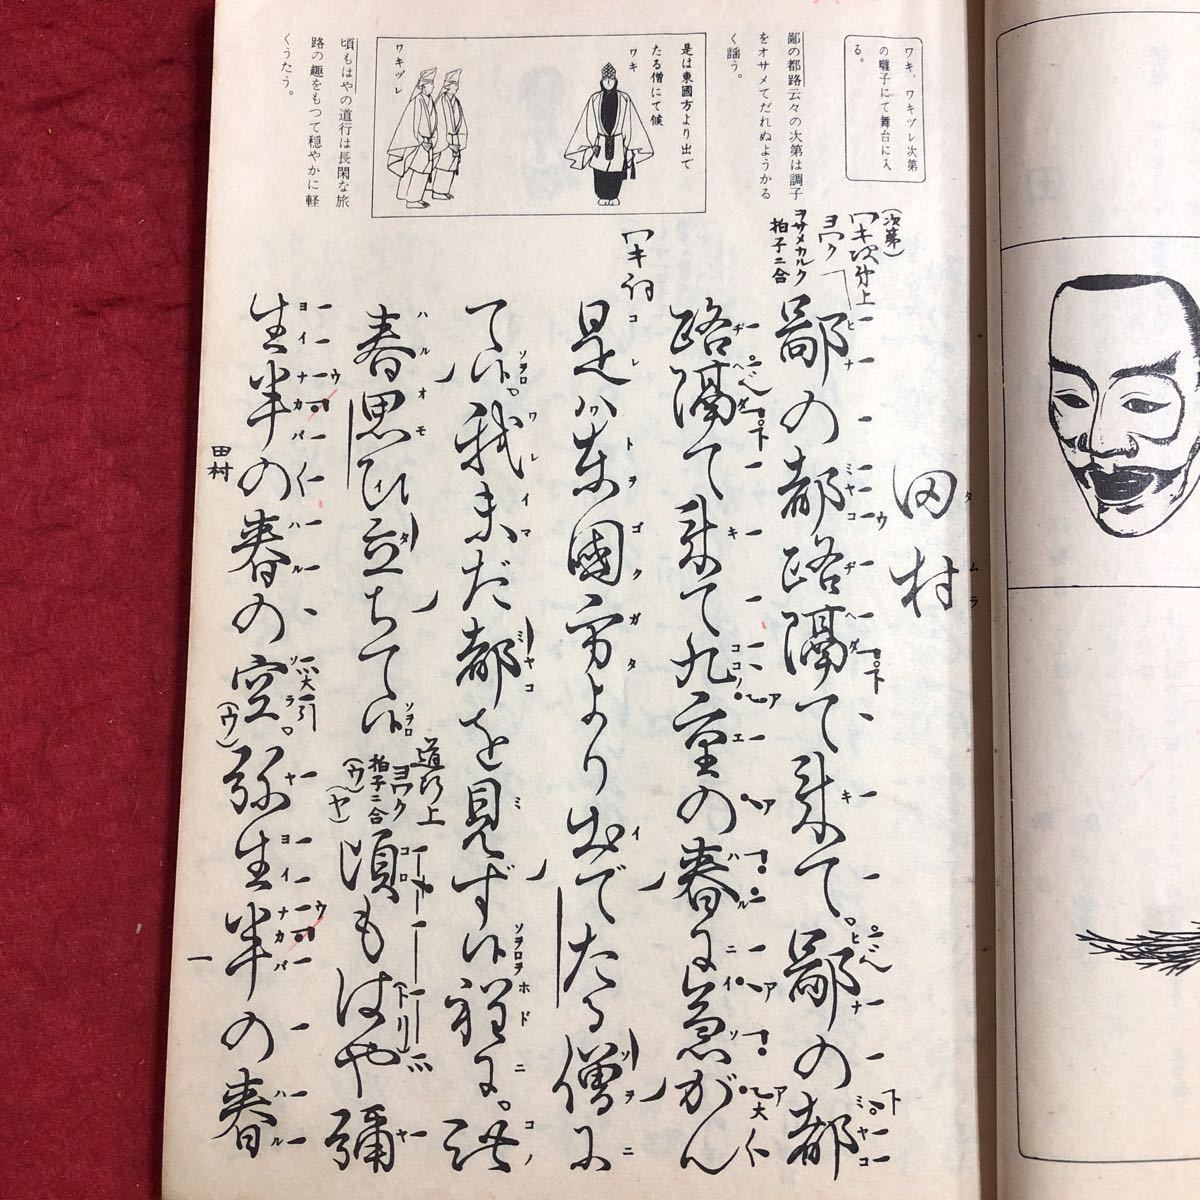 ワキ、ワキヅレ次第
の囃子にて舞台に入
る。
鄙の都路云々の次第は調子
をオサメてだれぬようかる
く謡う。
是は東國方より出で
たる僧にて候
ワキ
ワキヅレ
頃もはやの道行は長閑な旅
路の趣をもつて穏やかに軽
くうたう。
田村
タムラ
(次第)
ワキ次第上
ヨワク
ヲサメカルク
拍子ニ合
鄙の都路隔て来て。鄙の都
路隔て来て九重の春に急がん
ワキ詞
是ハ東國方より出でたる僧に
て候。我未だ都を見ず候程に。此
春思ひ立ちて候
道行上
ヨワク
拍子ニ合
頃もはや彌
生半の春の空。弥生半の春
田村
一